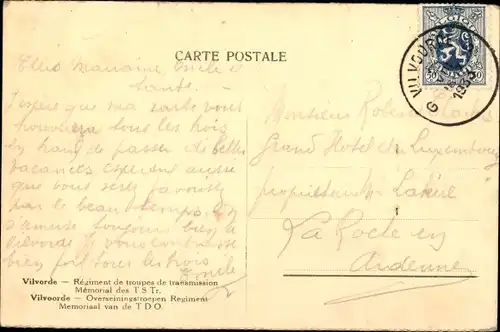 CARTE POSTALE
VILVOORDE
1933
50
Chère Marraine, Emile et
tante.
J'espère que ma carte vous
trouvera tous les trois
en train de passer de belles
vacances espérant aussi
que vous serez favorisés
par le beau temps. On
s'amuse toujours bien à
Vilvorde
bien fort tous les trois
Emile
Monsieur Robert
Grand Hotel du Luxembourg
propriétaire
La Roche en
Ardenne
Vilvorde — Régiment de troupes de transmission
Mémorial des T S Tr.
Vilvoorde — Overseiningstroepen Regiment
Memoriaal van de T D O.